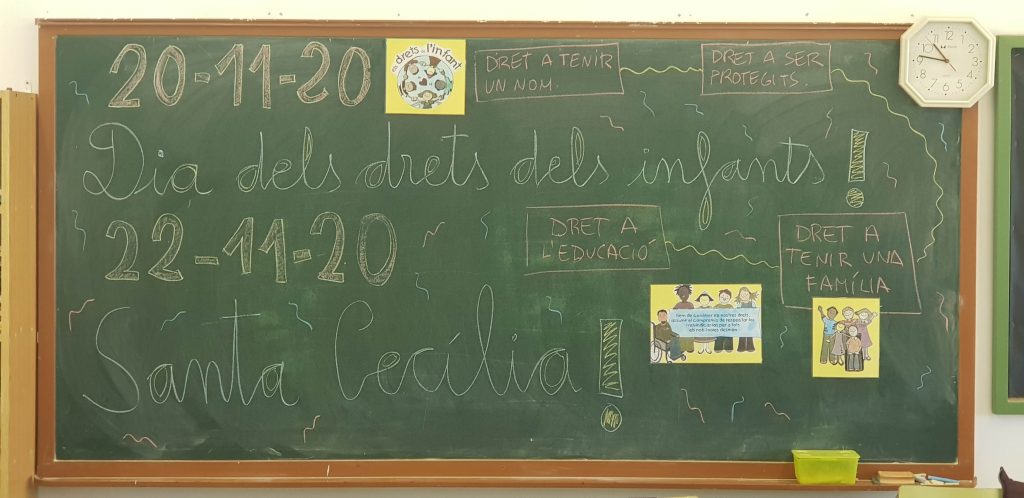 20-11-20
els drets de l'infant
DRET A TENIR
UN NOM.
DRET A SER
PROTEGITS.
Dia dels drets dels infants!
22-11-20
DRET A
L'EDUCACIÓ
DRET A
TENIR UNA
FAMÍLIA
Santa Cecília!
12
1
2
3
4
5
6
7
8
9
10
11